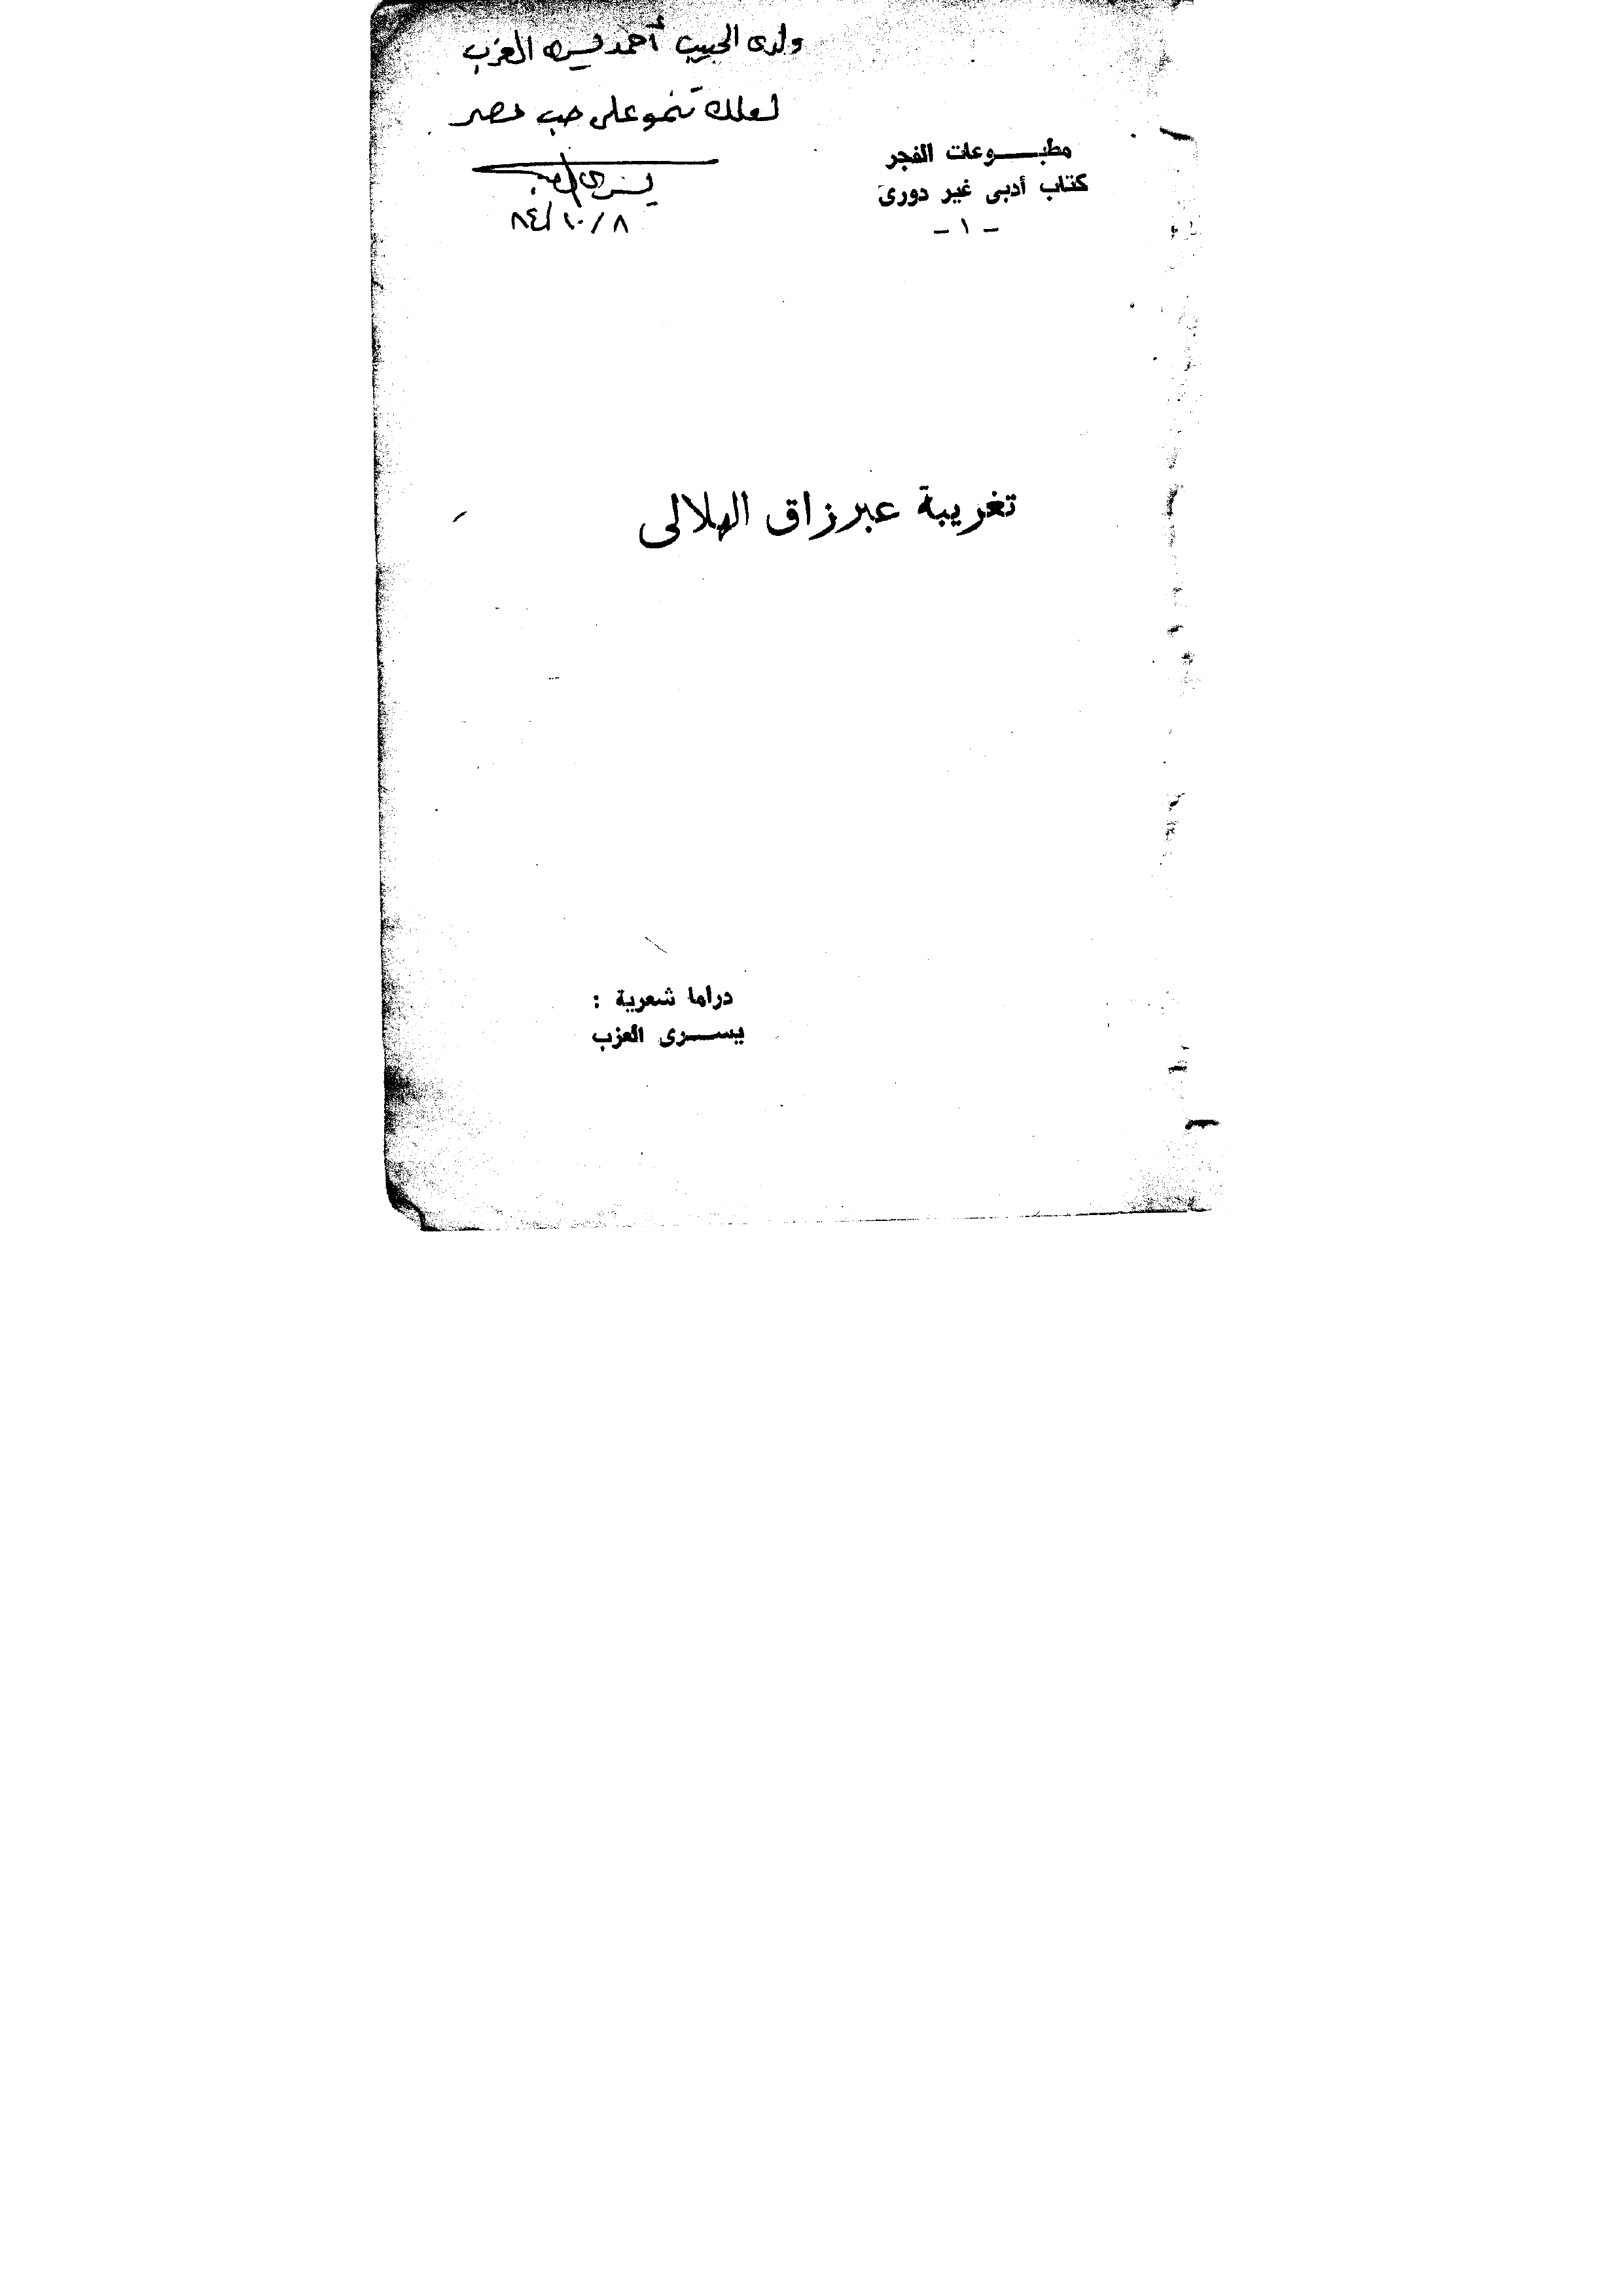 ولدى الحبيب أحمد يسرى العزب
لعلك تنمو على حب مصر
يسرى العزب
٨/١٠/٨٤
مطبـــوعات الفجر
كتاب أدبى غير دورى
- ١ -
تغريبة عبرزاق الهلالى
دراما شعرية :
يســـرى العزب